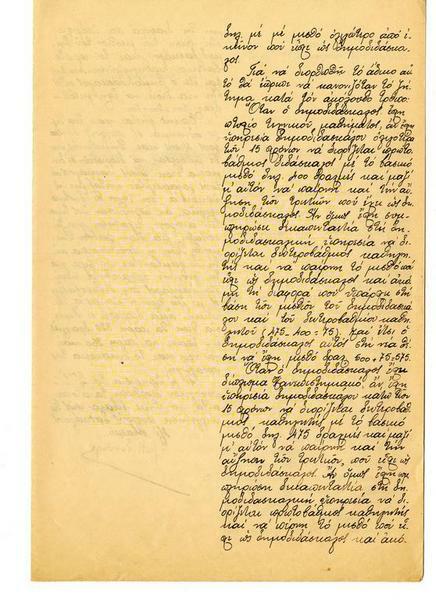 δηλ. μέ μέ μισθό ὀλιγώτερο ἀπό ἐ-
κεῖνον πού εἶχε ὡς δημοδιδάσκα-
λος.
Γιά νά διορθωθῆ τό ἄδικο αὐ-
τό θά ἔπρεπε νά κανονιζόταν τό ζή-
τημα κατά τόν ἀκόλουθο τρόπο:
Ὅταν ὁ δημοδιδάσκαλος ἔχη
πτυχίο τεχνικοῦ μαθήματος, ἄν ἔχη
ὑπηρεσία δημοδιδασκάλου ὀλιγωτέρα
τῶν 15 χρόνων νά διορίζεται πρωτο-
βάθμιος διδάσκαλος μέ τό βασικό
μισθό δηλ. 400 δραχμές καί μαζί
μ' αὐτόν νά παίρνη καί τήν αὔ-
ξηση τῶν τριετιῶν πού ἔχει ὡς δη-
μοδιδάσκαλος. Ἄν ὅμως ἔχη συμ-
πληρώσει δεκαπενταετία στή δη-
μοδιδασκαλική ὑπηρεσία νά δι-
ορίζεται δευτεροβάθμιος καθηγη-
τής καί νά παίρνη τό μισθό πού
εἶχε ὡς δημοδιδάσκαλος καί ἀκό-
μη τή διαφορά πού ὑπάρχει στή
βάση τῶν μισθῶν τοῦ δημοδιδασκά-
λου καί τοῦ δευτεροβαθμίου καθη-
γητοῦ (475-400=75). Καί ἔτσι ὁ
δημοδιδάσκαλος αὐτός στή νέα θέ-
ση νά ἔχη μισθό δραχ. 500+75=575.
Ὅταν ὁ δημοδιδάσκαλος ἔχη
δίπλωμα Πανεπιστημιακό, ἄν ἔχη
ὑπηρεσία δημοδιδασκάλου κάτω τῶν
15 χρόνων νά διορίζεται δευτεροβάθ-
μιος καθηγητής μέ τό βασικό
μισθό δηλ. 475 δραχμές καί μαζί
μ' αὐτόν νά παίρνη καί τήν
αὔξηση τῶν τριετιῶν, πού εἶχε ὡς
δημοδιδάσκαλος. Ἄν ὅμως ἔχη συμ-
πληρώση δεκαπενταετία στή δη-
μοδιδασκαλική ὑπηρεσία νά δι-
ορίζεται πρωτοβάθμιος καθηγητής
καί νά παίρνη τό μισθό πού εἶ-
χε ὡς δημοδιδάσκαλος καί ἀκό-